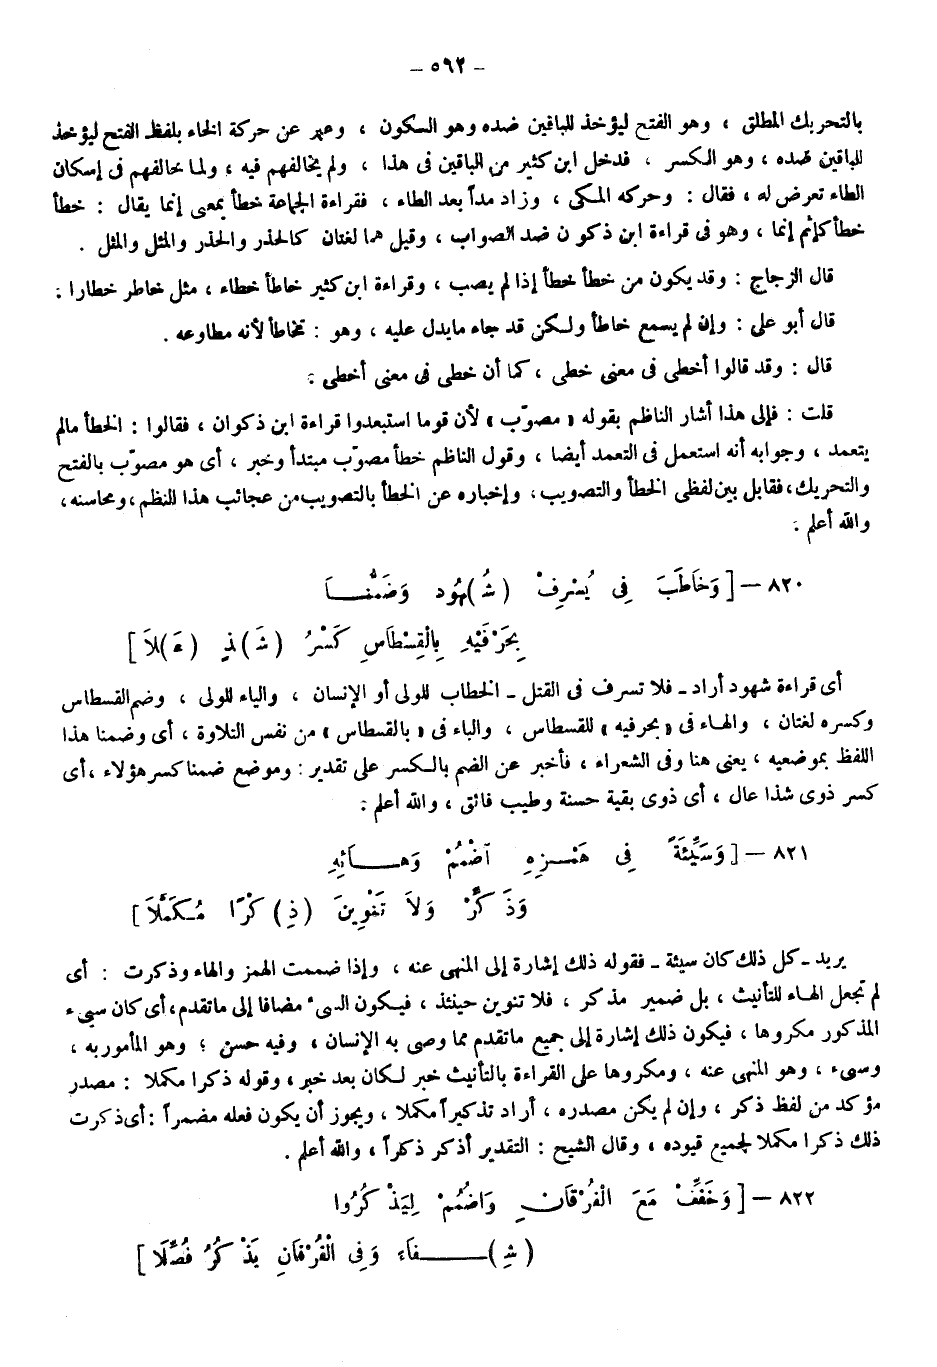 – ٥٦٢ –
بالتحريك المطلق ، وهو الفتح ليؤخذ للباقين ضده وهو السكون ، وعبر عن حركة الخاء بلفظ الفتح ليؤخذ
للباقين ضده ، وهو الكسر ، فدخل ابن كثير من الباقين فى هذا ، ولم يخالفهم فيه ، ولما خالفهم فى إسكان
الطاء تعرض له ، فقال : وحركه المكى ، وزاد مداً بعد الطاء ، فقراءة الجماعة خطأ بمعنى إنما يقال : خطأ
خطأ كإثم إنما ، وهو فى قراءة ابن ذكون ضد الصواب ، وقيل هما لغتان كالحذر والحذر والمثل والمثل .
قال الزجاج : وقد يكون من خطأ خطأ إذا لم يصب ، وقراءة ابن كثير خاطأ خطاء ، مثل خاطر خطارا :
قال أبو على : وإن لم يسمع خاطأ ولكن قد جاء مايدل عليه ، وهو : تخاطأ لأنه مطاوعه .
قال : وقد قالوا أخطى فى معنى خطى ، كما أن خطى فى معنى أخطى :
قلت : فإلى هذا أشار الناظم بقوله « مصوّب » لأن قوما استبعدوا قراءة ابن ذكوان ، فقالوا : الخطأ مالم
يتعمد ، وجوابه أنه استعمل فى التعمد أيضا ، وقول الناظم خطأ مصوّب مبتدأ وخبر ، أى هو مصوّب بالفتح
والتحريك ، فقابل بين لفظى الخطأ والتصويب ، وإخباره عن الخطأ بالتصويب من عجائب هذا النظم ، ومحاسنه ،
والله أعلم :
٨٢٠ – [ وَخَاطَبَ فِى يُسْرِفْ (شُ)هُود وَضَمُّنَا
بِحَرْفَيْهِ بِالْقِسْطَاسِ كَسْرُ (شَ)ذٍ (عَ)لاَ ]
أى قراءة شهود أراد – فلا تسرف فى القتل – الخطاب للولى أو الإنسان ، والياء للولى ، وضم القسطاس
وكسره لغتان ، والهاء فى « بحرفيه » للقسطاس ، والباء فى « بالقسطاس » من نفس التلاوة ، أى وضمنا هذا
اللفظ بموضعيه ، يعنى هنا وفى الشعراء ، فأخبر عن الضم بالكسر على تقدير : وموضع ضمنا كسر هؤلاء ، أى
كسر ذوى شذا عال ، أى ذوى بقية حسنة وطيب فائق ، والله أعلم :
٨٢١ – [ وَسَيِّئَةً فِى هَمْزِهِ اضْمُمْ وَهَائِهِ
وَذَكِّرْ وَلاَ تَنْوِينَ (ذِ)كْرًا مُكَمَّلاَ ]
يريد – كل ذلك كان سيئة – فقوله ذلك إشارة إلى المنهى عنه ، وإذا ضممت الهمز والهاء وذكرت : أى
لم تجعل الهاء للتأنيث ، بل ضمير مذكر ، فلا تنوين حينئذ ، فيكون السىء مضافا إلى ماتقدم ، أى كان سيىء
المذكور مكروها ، فيكون ذلك إشارة إلى جميع ماتقدم مما وصى به الإنسان ، وفيه حسن ؛ وهو المأمور به ،
وسىء ، وهو المنهى عنه ، ومكروها على القراءة بالتأنيث خبر لكان بعد خبر ، وقوله ذكرا مكملا : مصدر
مؤكد من لفظ ذكر ، وإن لم يكن مصدره ، أراد تذكيراً مكملا ، ويجوز أن يكون فعله مضمراً : أى ذكرت
ذلك ذكرا مكملا لجميع قيوده ، وقال الشيح : التقدير أذكر ذكراً ، والله أعلم .
٨٢٢ – [ وَخَفِّفْ مَعَ الْفُرْقَانِ وَاضْمُمْ لِيَذْكُرُوا
(شِ)فَاءَ وَفِى الْفُرْقَانِ يَذْكُرُ فُصِّلَا ]